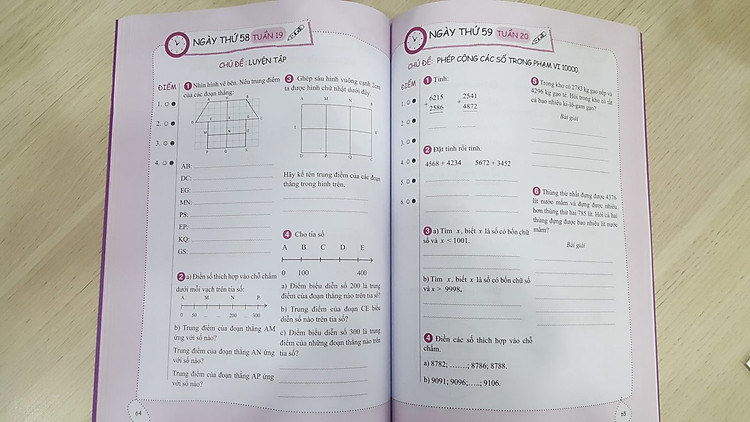 NGÀY THỨ 58 TUẦN 19
CHỦ ĐỀ: LUYỆN TẬP
ĐIỂM
1.
2.
3.
4.
1 Nhìn hình vẽ bên. Nêu trung điểm
của các đoạn thẳng:
AB:
DC:
EG:
MN:
PS:
EP:
KQ:
GS:
2 a) Điền số thích hợp vào chỗ chấm
dưới mỗi vạch trên tia số:
A M N P
0 50 ... ... 200 300
b) Trung điểm của đoạn thẳng AM
ứng với số nào?
Trung điểm của đoạn thẳng AN ứng
với số nào?
Trung điểm của đoạn thẳng AP ứng
với số nào?
3 Ghép sáu hình vuông cạnh 2cm
ta được hình chữ nhật dưới đây.
A M N B
D P Q C
Hãy kể tên trung điểm của các đoạn
thẳng trong hình trên.
4 Cho tia số
A B C D E
0 100 400
a) Điểm biểu diễn số 200 là trung
điểm của đoạn thẳng nào trên tia số?
b) Trung điểm của đoạn CE biểu
diễn số nào trên tia số?
c) Điểm biểu diễn số 300 là trung
điểm của những đoạn thẳng nào trên
tia số?
64
NGÀY THỨ 59 TUẦN 20
CHỦ ĐỀ: PHÉP CỘNG CÁC SỐ TRONG PHẠM VI 10000
ĐIỂM
1.
2.
3.
4.
5.
6.
1 Tính:
6215 2541
+ +
2586 4872
2 Đặt tính rồi tính.
4568 + 4234 5672 + 3452
3 a) Tìm x, biết x là số có bốn chữ
số và x < 1001.
b) Tìm x, biết x là số có bốn chữ số
và x > 9998.
4 Điền các số thích hợp vào chỗ
chấm.
a) 8782; .......; 8786; 8788.
b) 9091; 9096;.....; 9106.
5 Trong kho có 2783 kg gạo nếp và
4296 kg gạo tẻ. Hỏi trong kho có tất
cả bao nhiêu ki-lô-gam gạo?
Bài giải
6 Thùng thứ nhất đựng được 4376
lít nước mắm và đựng được nhiều
hơn thùng thứ hai 785 lít. Hỏi cả hai
thùng đựng được bao nhiêu lít nước
mắm?
Bài giải
65